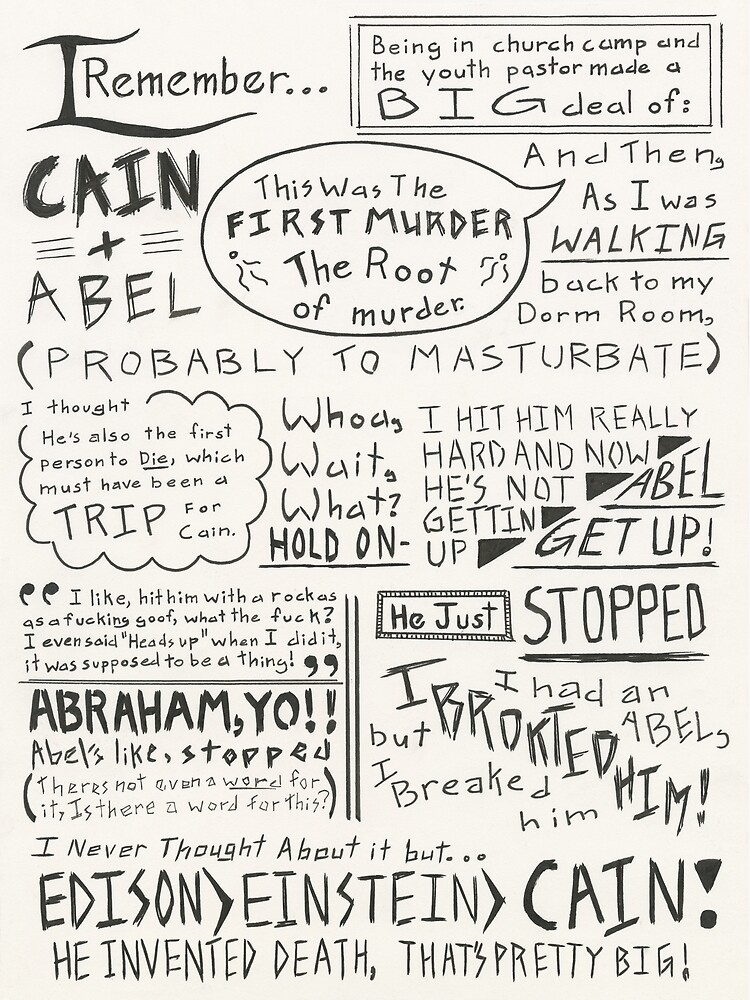 I Remember...
Being in church camp and
the youth pastor made a
BIG deal of:
CAIN
+
ABEL
This Was The
FIRST MURDER
The Root
of murder.
And Then,
As I was
WALKING
back to my
Dorm Room,
(PROBABLY TO MASTURBATE)
I thought
He's also the first
person to Die, which
must have been a
TRIP For
Cain.
Whoa,
Wait,
What?
HOLD ON-
I HIT HIM REALLY
HARD AND NOW
HE'S NOT
GETTIN
UP
ABEL
GET UP!
"I like, hit him with a rock as
as a fucking goof, what the fuck?
I even said "Heads up" when I did it,
it was supposed to be a thing!"
ABRAHAM, YO!!
Abel's like, stopped
(theres not even a word for
it, Is there a word for this?)
He Just STOPPED
I had an
ABEL,
but
I BROKTED HIM!
I Breaked
him
I Never Thought About it but...
EDISON>EINSTEIN> CAIN!
HE INVENTED DEATH, THAT'S PRETTY BIG!